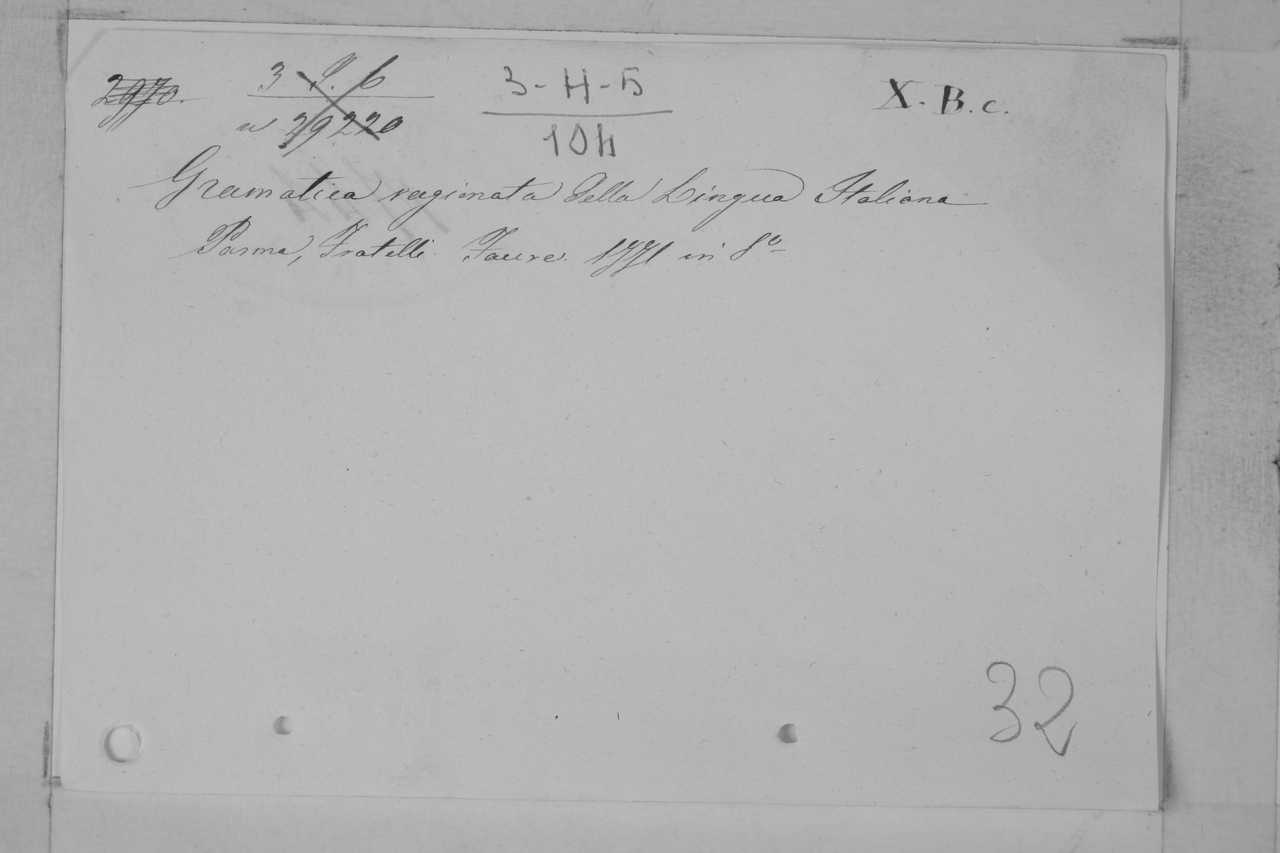 2970.
3 P. 6
n 29220
3-H-5
104
X. B. c.
Gramatica ragionata della Lingua Italiana
Parma, Fratelli Faure. 1771 in 8º
32